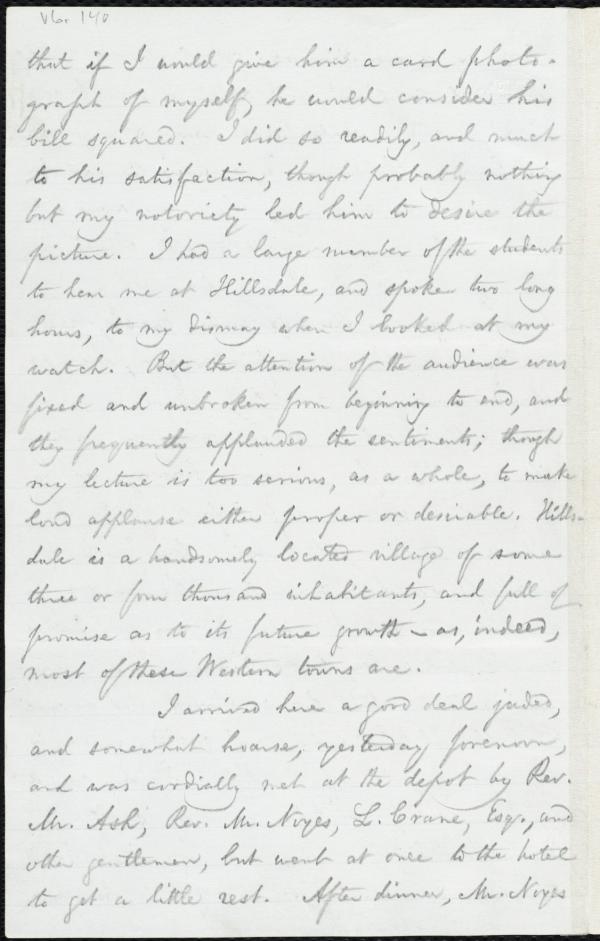 V6. 140
that if I would give him a card photo-
graph of myself, he would consider his
bill squared. I did so readily, and much
to his satisfaction, though probably nothing
but my notoriety led him to desire the
picture. I had a large number of the students
to hear me at Hillsdale, and spoke two long
hours, to my dismay when I looked at my
watch. But the attention of the audience was
fixed and unbroken from beginning to end, and
they frequently applauded the sentiments; though
my lecture is too serious, as a whole, to make
loud applause either proper or desirable. Hills-
dale is a handsomely located village of some
three or four thousand inhabitants, and full of
promise as to its future growth – as, indeed,
most of these Western towns are.
I arrived here a good deal jaded,
and somewhat hoarse, yesterday forenoon,
and was cordially met at the depot by Rev.
Mr. Ash, Rev. Mr. Noyes, L. Crane, Esq., and
other gentlemen, but went at once to the hotel
to get a little rest. After dinner, Mr. Noyes